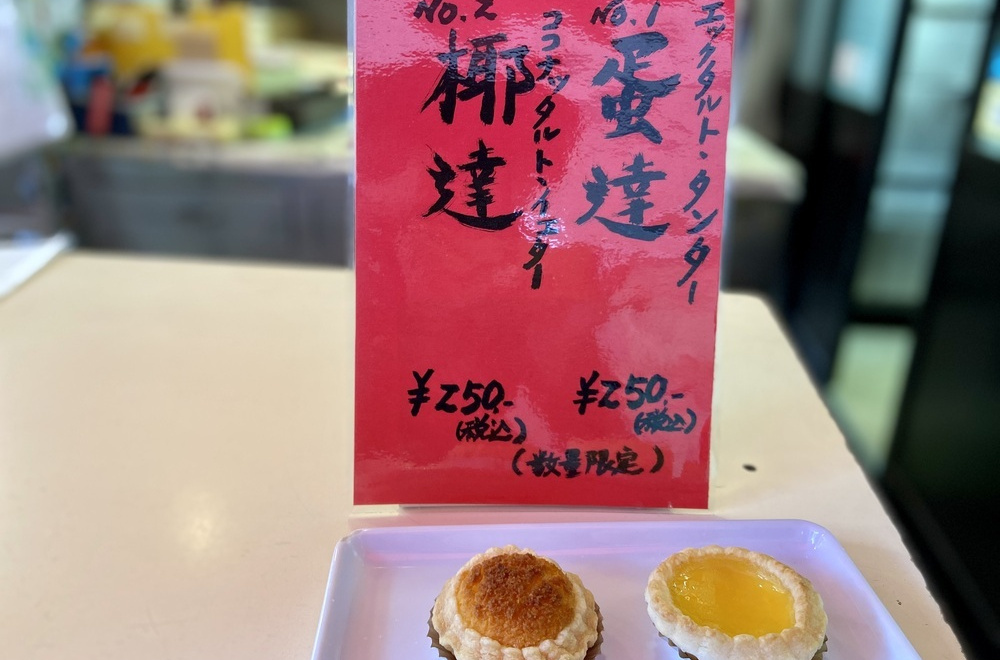 エッグタルト・タンター
No.1
蛋達
¥250.-
(税込)
ココナッツタルト・イェター
No.2
椰達
¥250.-
(税込)
(数量限定)